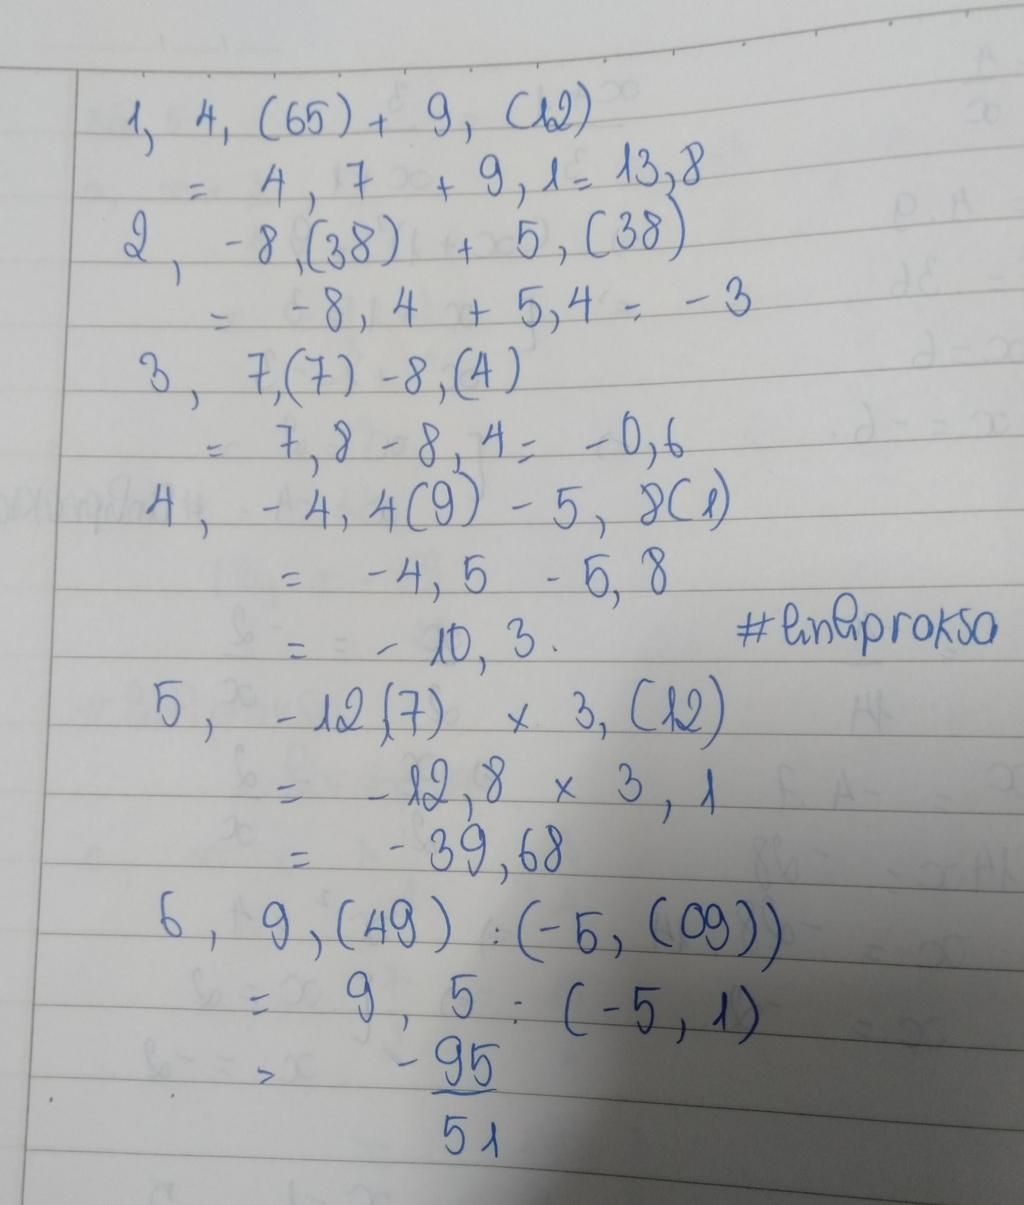 1, 4, (65) + 9, (12)
= 4, 7 + 9, 1 = 13,8
2, -8,(38) + 5, (38)
= -8, 4 + 5,4 = -3
3, 7,(7) -8,(4)
= 7,8 -8, 4 = -0,6
4, -4, 4(9) - 5, 8(1)
= -4, 5 - 5, 8
= - 10, 3.
#linliproksa
5, -12,(7) x 3, (12)
= -12,8 x 3, 1
= -39,68
6, 9, (49) : (-5, (09))
= 9, 5 : (-5, 1)
= - 95
51